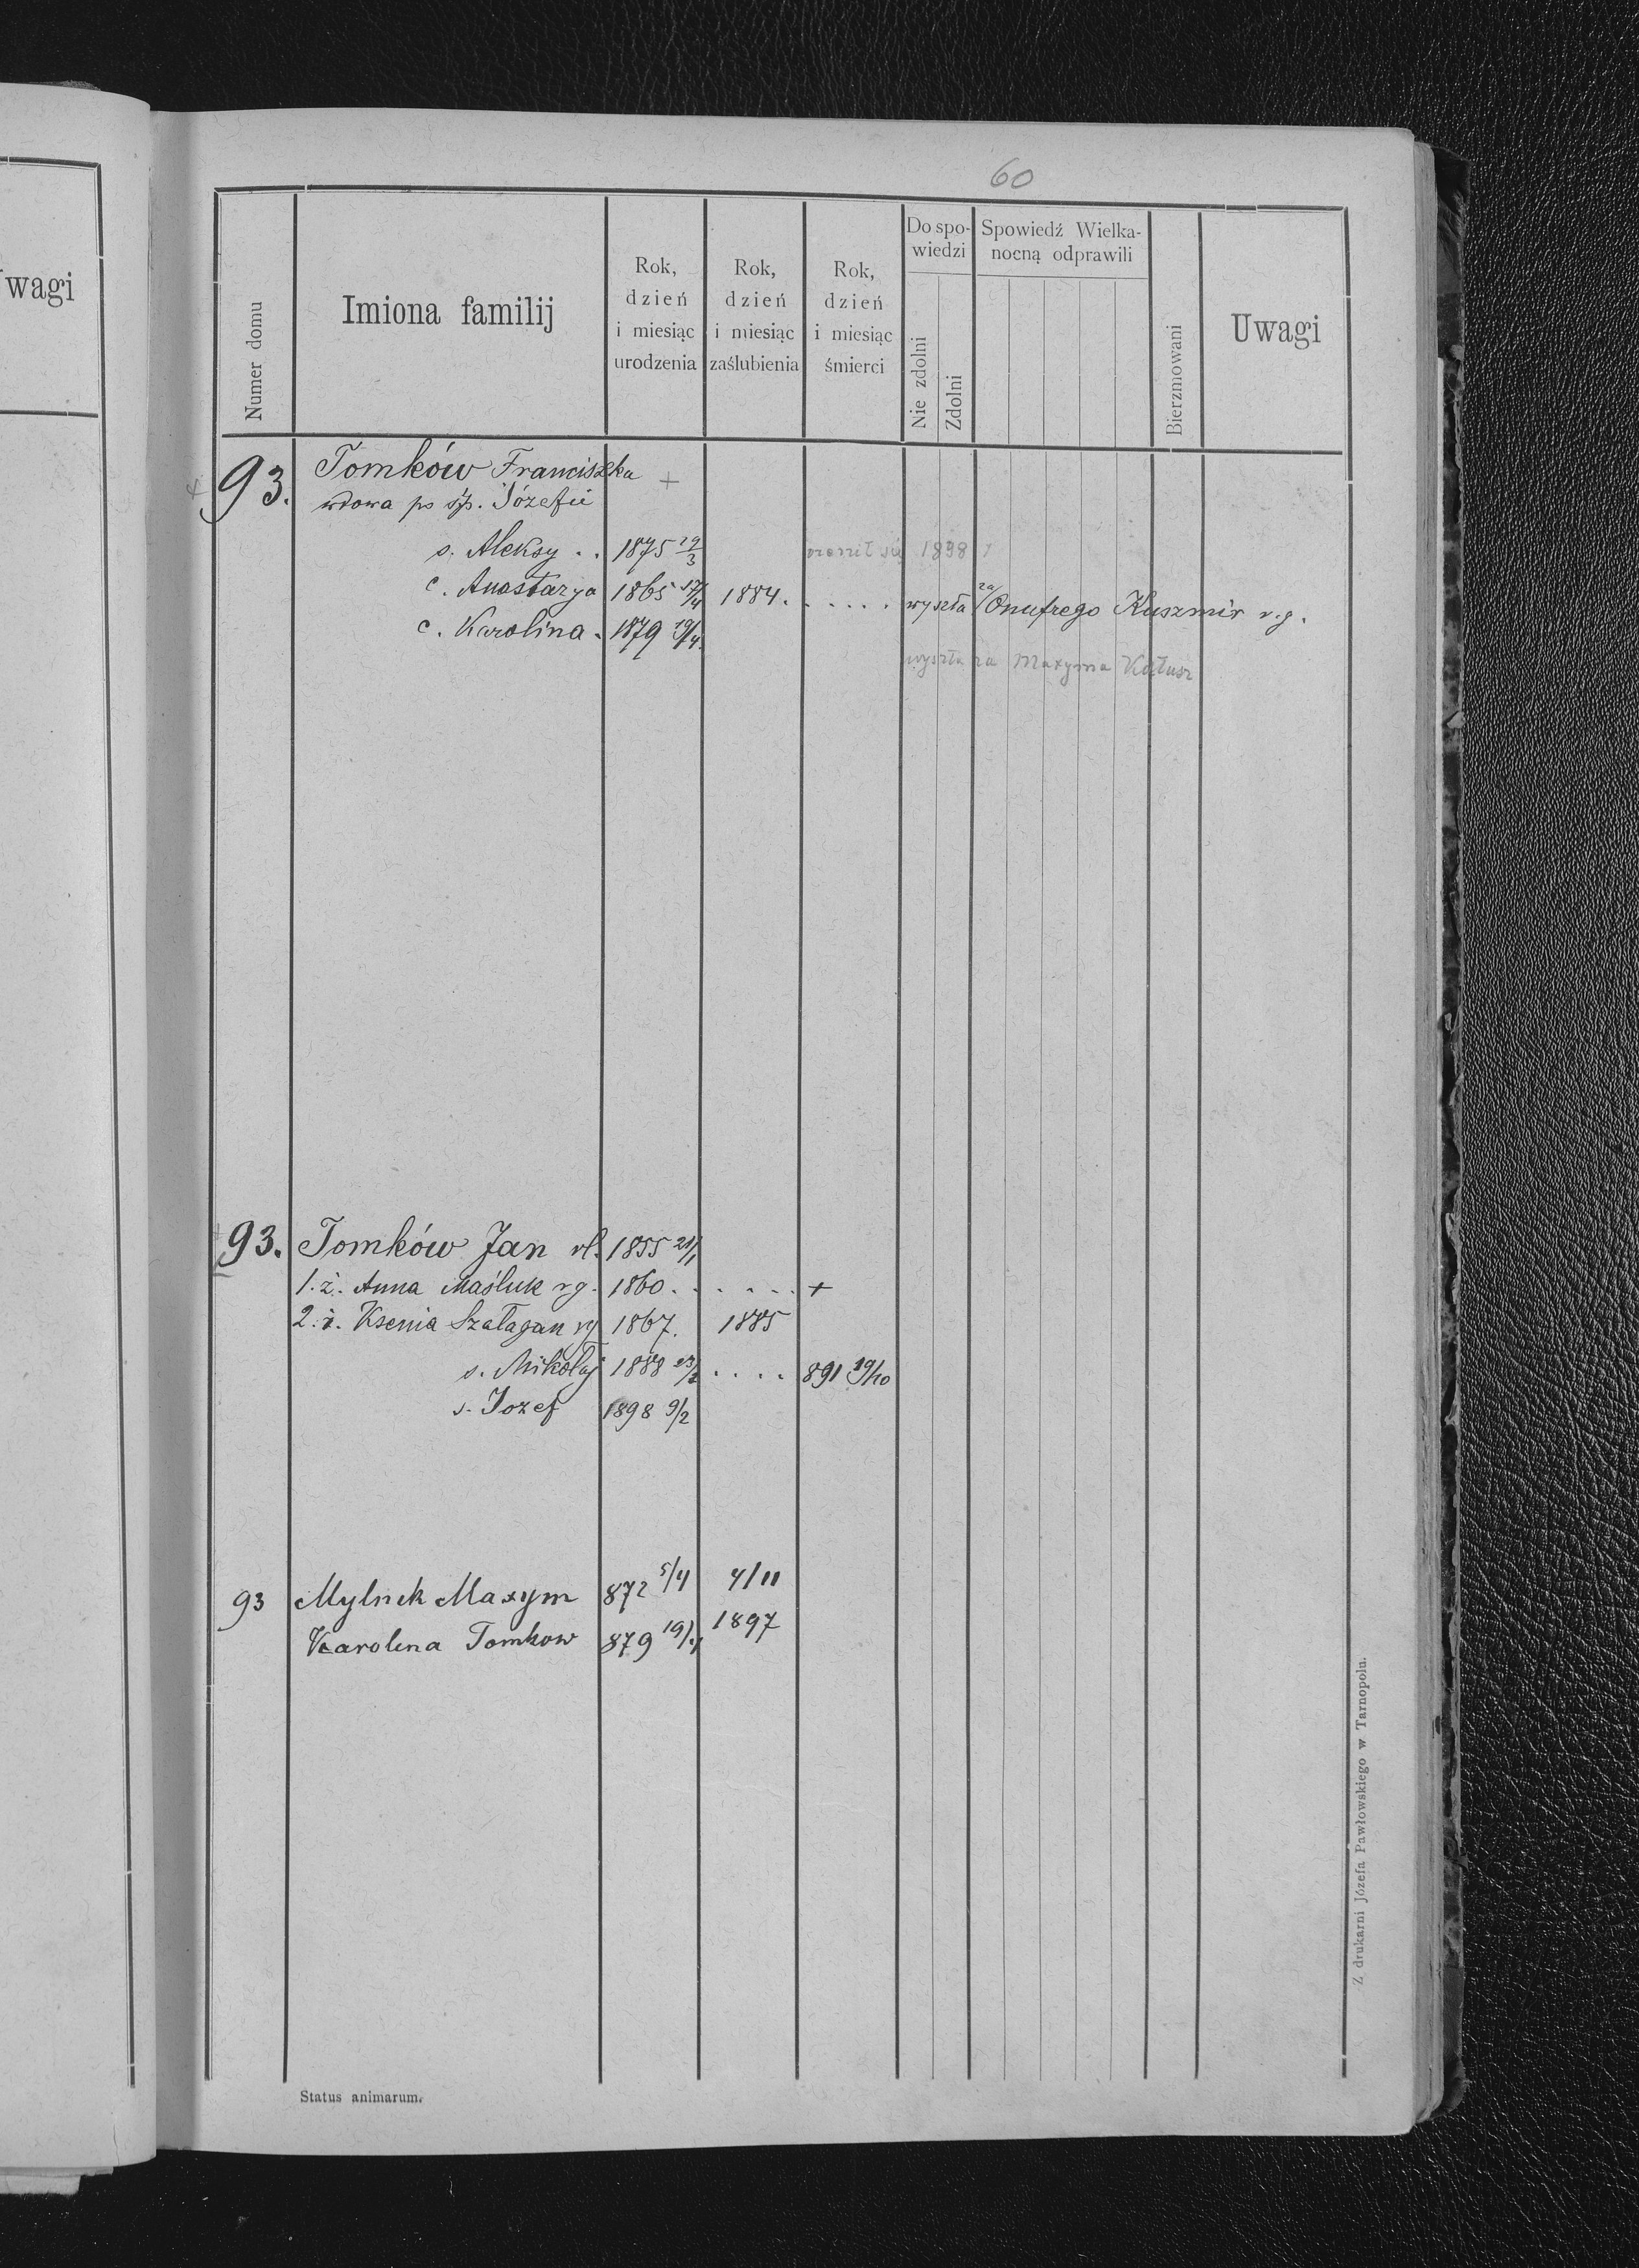 wagi
60
Numer domu
Imiona familij
Rok,
dzień
i miesiąc
urodzenia
Rok,
dzień
i miesiąc
zaślubienia
Rok,
dzień
i miesiąc
śmierci
Do spo-
wiedzi
Nie zdolni
Zdolni
Spowiedź Wielka-
nocną odprawili
Bierzmowani
Uwagi
+ 93. Tomków Franciszka +
wdowa po śp. Józefie
s. Aleksy . . 1875 19/3 ożenił się 1898
c. Anastazya 1865 17/4 1884 . . . . . . wyszła za Onufrego Kuszmir r.g.
c. Karolina . 1879 19/4.
wyszła za Maxyma
93. Tomków Jan rł. 1855 21/1
1. ż. Anna Maśluk rg. 1860 . . . . . . +
2. ż. Ksenia Szałagan rg 1867. 1885
s. Mikołaj 1888 23/2 . . . . 891 19/10
s. Jozef 1898 9/2
93 Mylnek Maxym 872 5/4 4/11
Karolina Tomkow 879 19/4 1897
Status animarum.
Z drukarni Józefa Pawłowskiego w Tarnopolu.